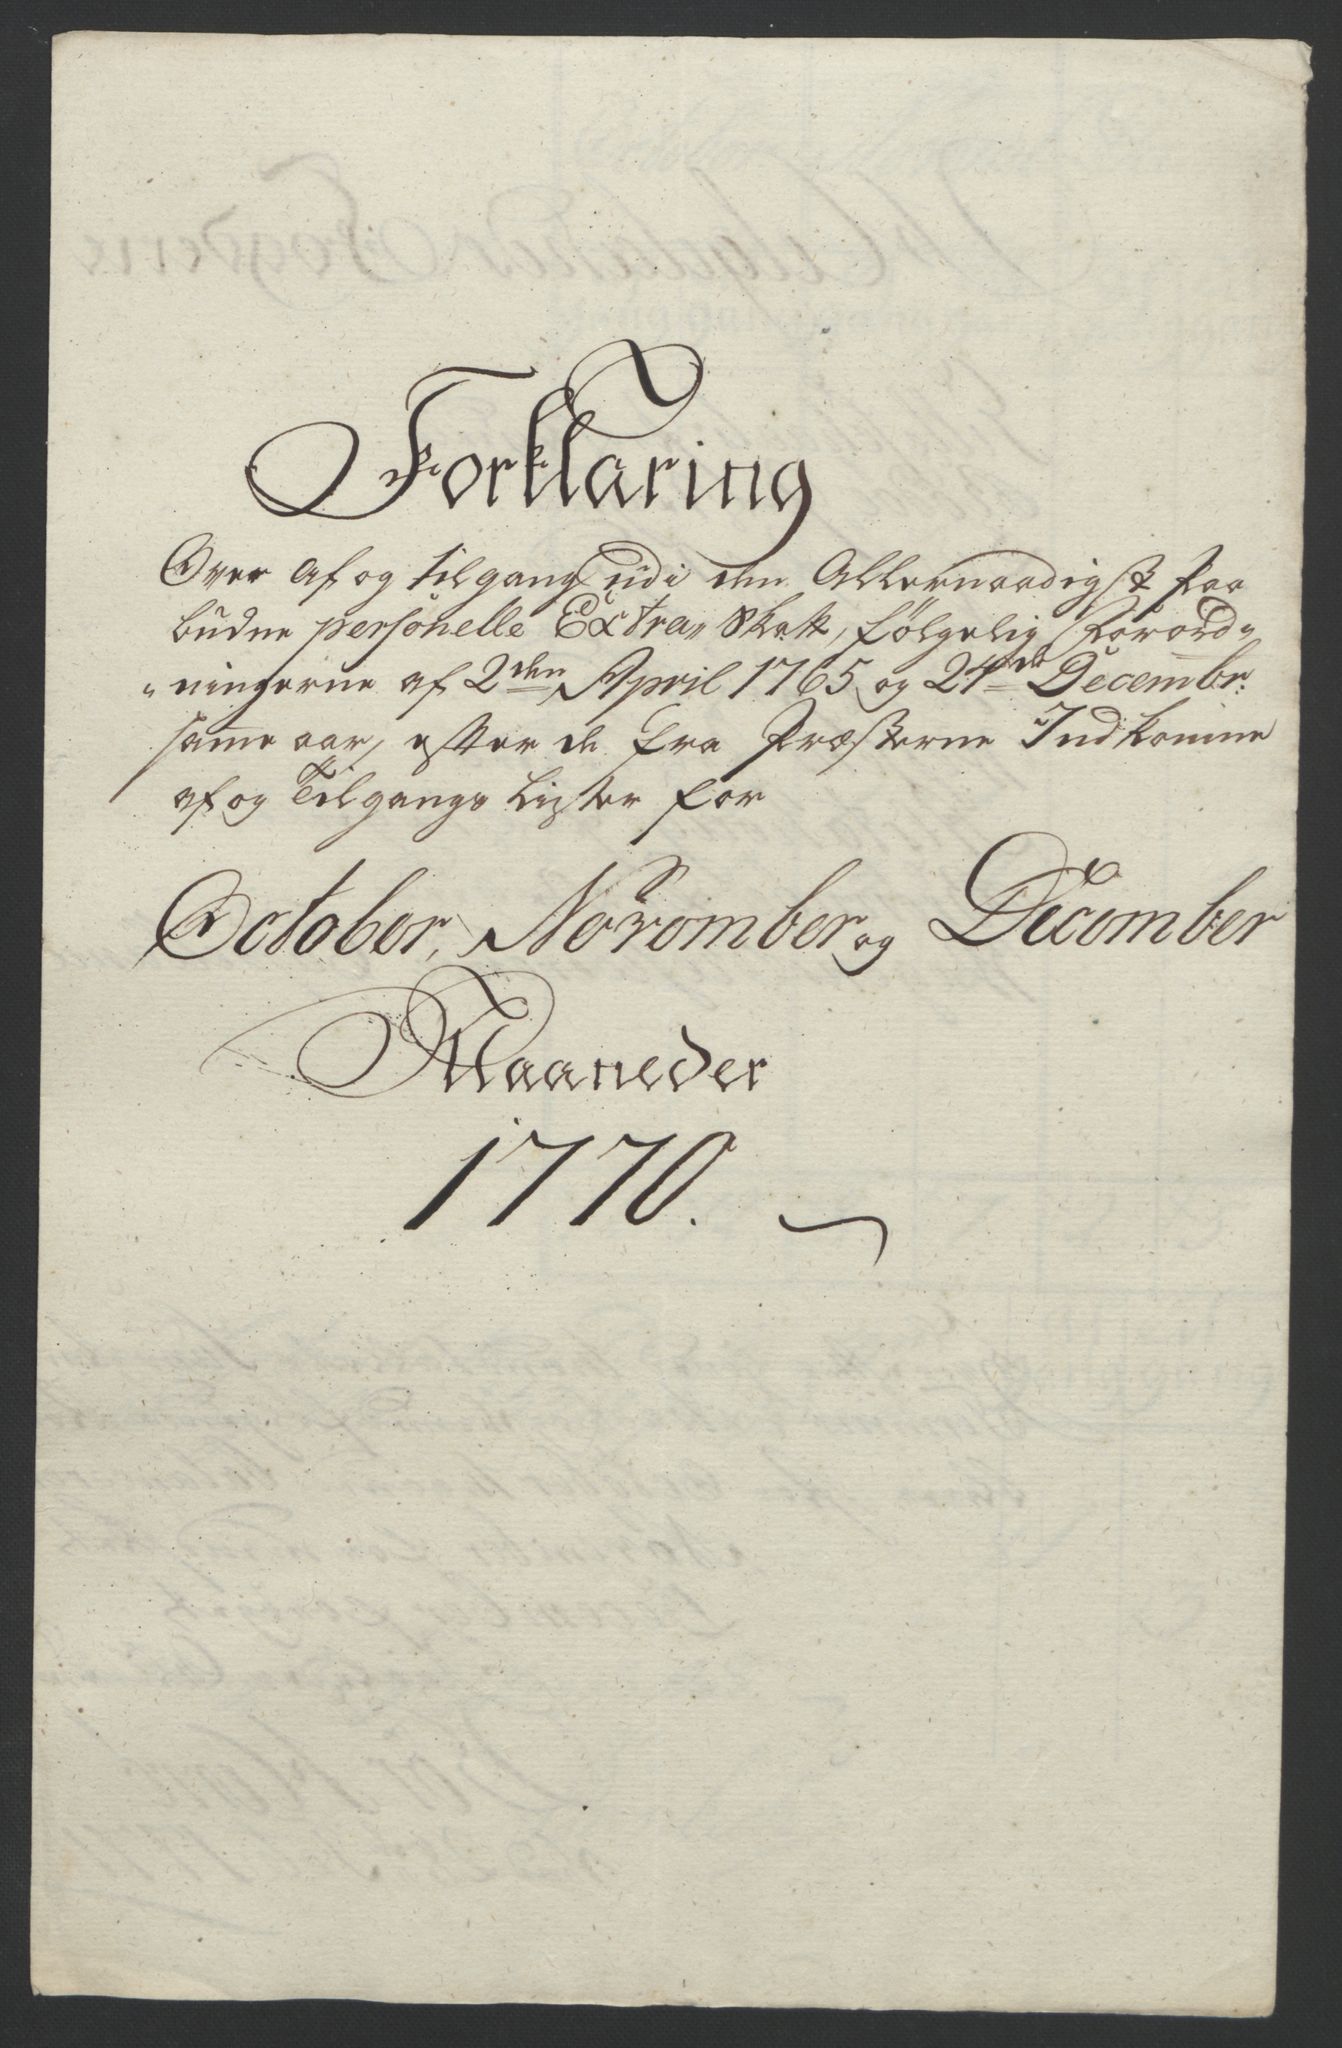 Forklaring
Over af og tilgang udi den Allernaadigst paa
budne personelle Extra„ Skatt, følgelig Forord„
„ningerne af 2den April 1765 og 24de Decembr:
same aar, efter de fra Præsterne Indkomne
af og Tilgangs Lister for
October, November og December
Maaneder
1770.